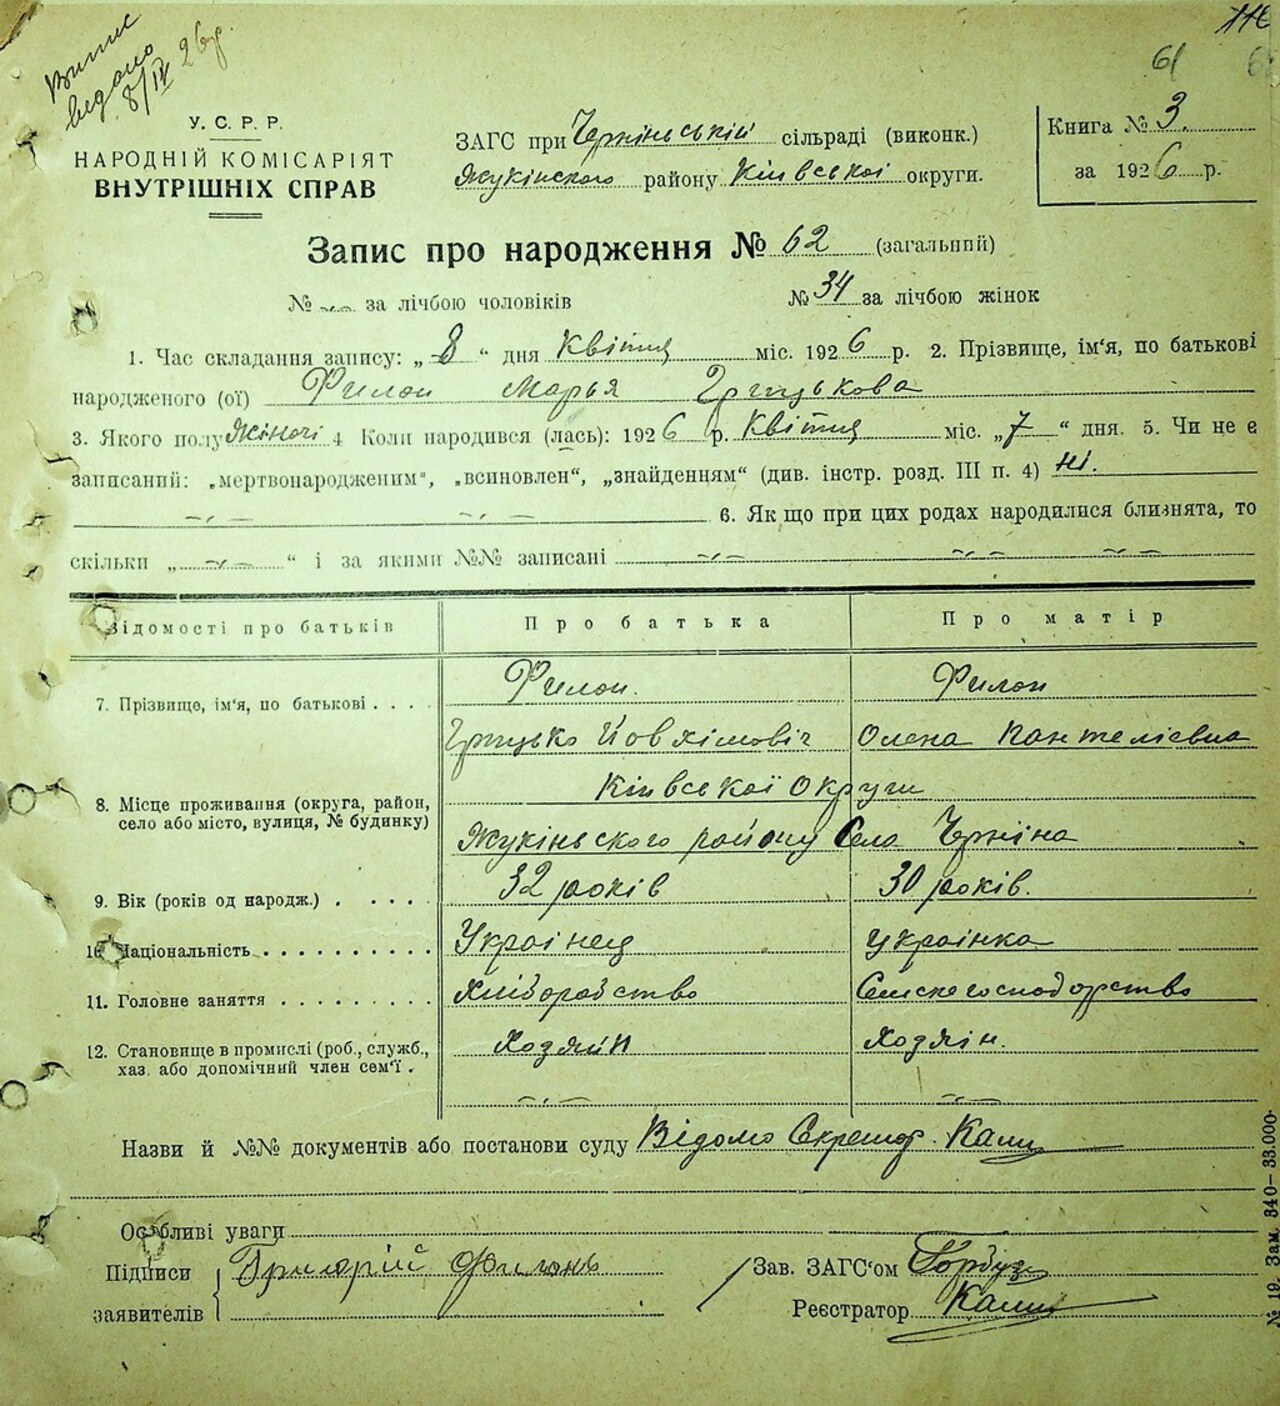 Випис
видано
8/IV 26 р.
61
У. С. Р. Р.
НАРОДНІЙ КОМІСАРІЯТ
ВНУТРІШНІХ СПРАВ
ЗАГС при Чернінській сільраді (виконк.)
Жукінского району Київської округи.
Книга № 3.
за 1926 р.
Запис про народження № 62 (загальний)
№ за лічбою чоловіків
№ 34 за лічбою жінок
1. Час складання запису: „8“ дня Квітня міс. 1926 р. 2. Прізвище, ім‘я, по батькові
народженого (ої) Филон Марья Грицькова
3. Якого полу Жіночі 4 Коли народився (лась): 1926 р. Квітня міс. „7“ дня. 5. Чи не є
записаний: „мертвонародженим“, „всиновлен“, „знайденням“ (див. інстр. розд. III п. 4) ні.
6. Як що при цих родах народилися близнята, то
скільки „ “ і за якими №№ записані
Відомості про батьків Про батька Про матір
7. Прізвище, ім‘я, по батькові . . . . Филон. Филон
Грицько Йовхімовіч Олена Пантелієвна
8. Місце проживання (округа, район, село або місто, вулиця, № будинку) Київської Округи
Жукінського району Села Черніна
9. Вік (років од народж.) . . . . 32 років 30 років.
10. Національність . . . . . . . . . . Украінец Украінка
11. Головне заняття . . . . . . . . . Хліборобство Сельскегосподорство
12. Становище в промислі (роб., служб., хаз. або допомічний член сем‘ї . Хозяйн Хозяін.
Назви й №№ документів або постанови суду Відомо Секретар.
Особливі уваги
Підписи
заявителів
Григорій Филонь
Зав. ЗАГС‘ом Горбуз
Реєстратор
№ 19. Зам. 340–33.000